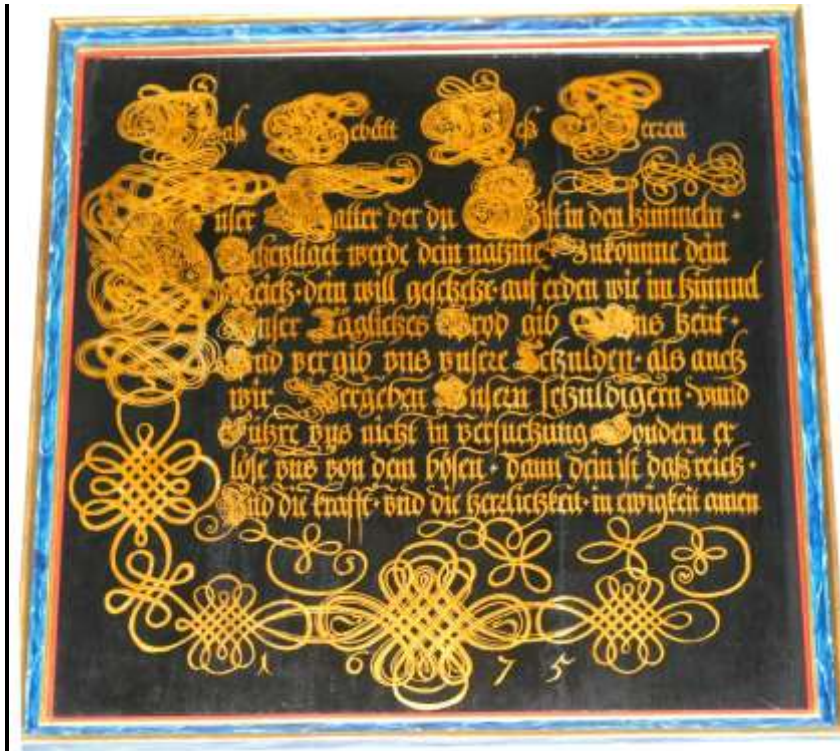 Daß Gebätt Deß Herren
Unser Vatter der du Bist in den himmeln ·
Geheyliget werde dein nahme · Zukomme dein
Reich · dein will geschehe · auf erden wie im himmel
Unser Tägliches Brod gib Uns heut ·
Und vergib vns vnsere Schulden · als auch
wir Vergeben Unsern schuldigern · vnnd
Führe vns nicht in versuchung Sondern er
löse vns von dem bösen · dann dein ist daß reich ·
Und die krafft · vnd die herrlichkeit · in ewigkeit amen
1 6 7 5